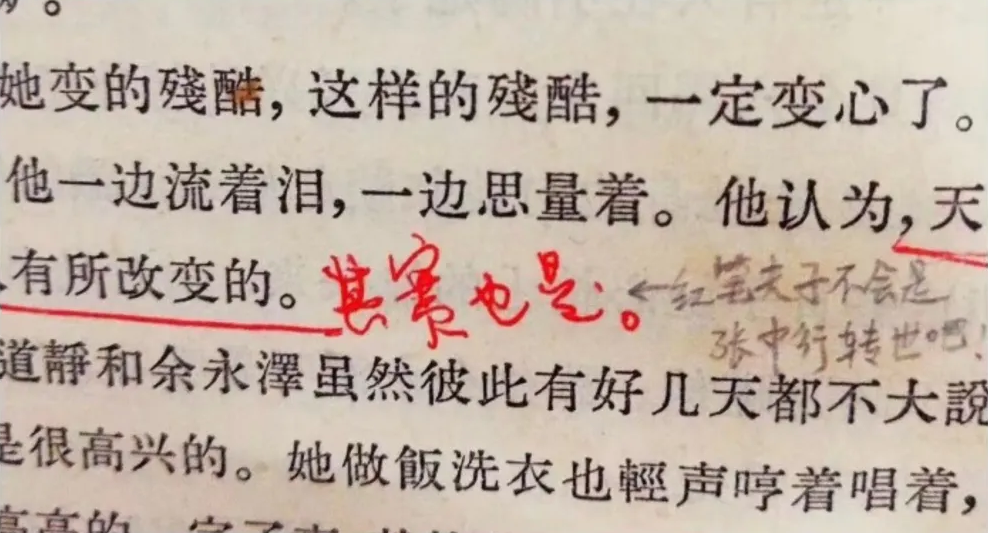 她变的殘酷，这样的殘酷，一定变心了。
他一边流着泪，一边思量着。他认为，天
有所改变的。其实也是。←红笔夫子不会是
张中行转世吧！
道靜和余永澤虽然彼此有好几天都不大說
是很高兴的。她做飯洗衣也輕声哼着唱着，